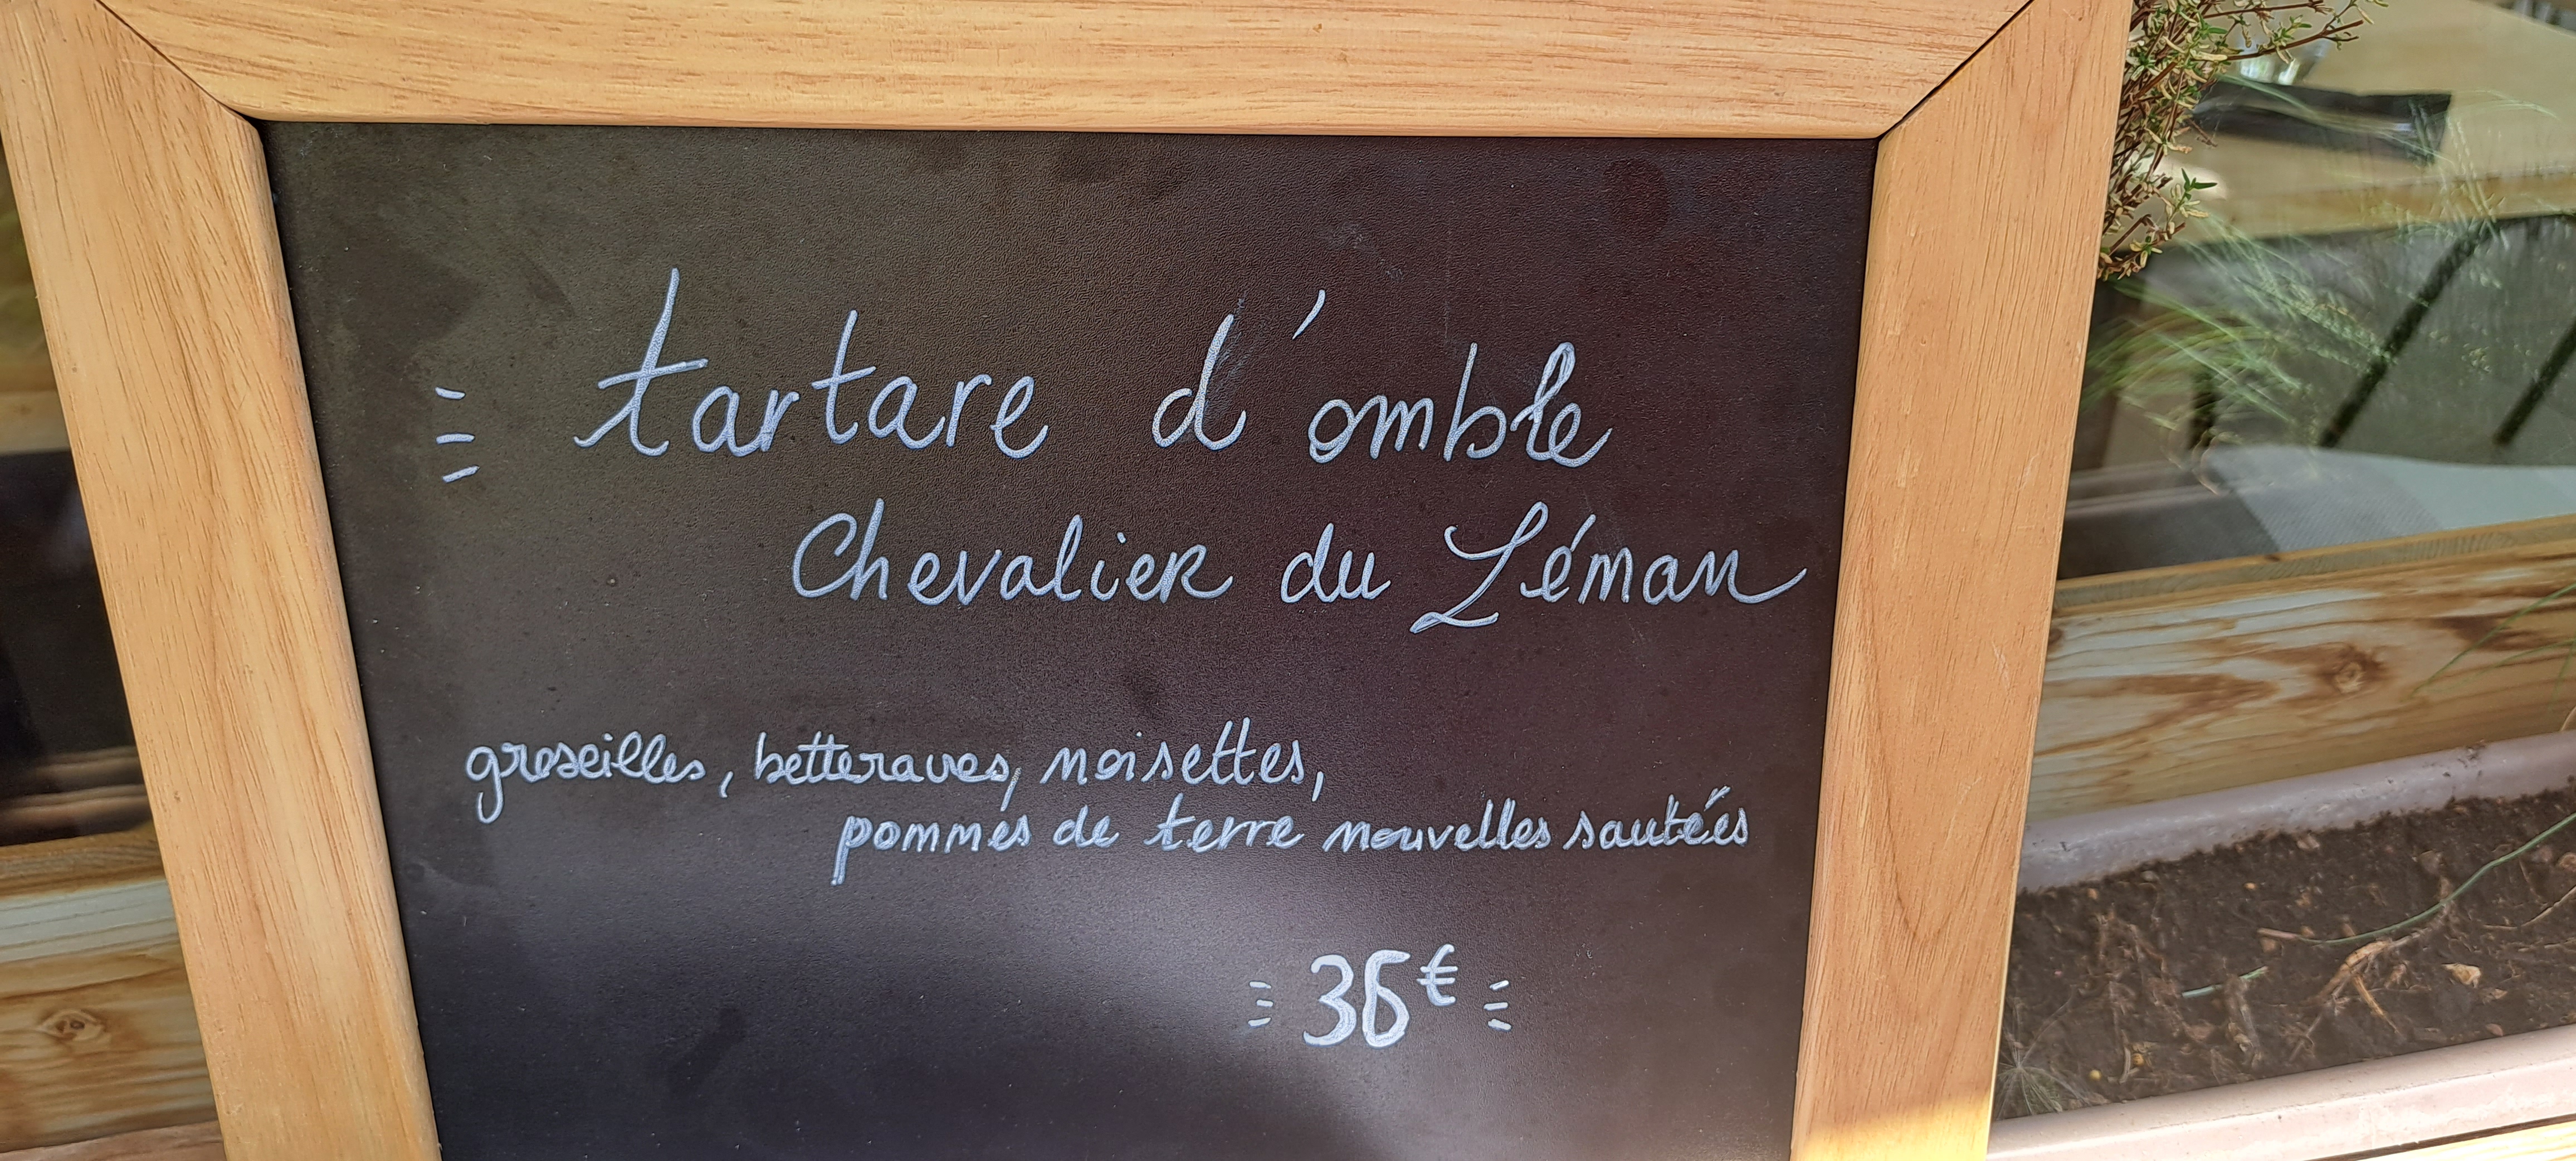 tartare d'omble
Chevalier du Léman
groseilles, betteraves, noisettes,
pommes de terre nouvelles sautées
36€